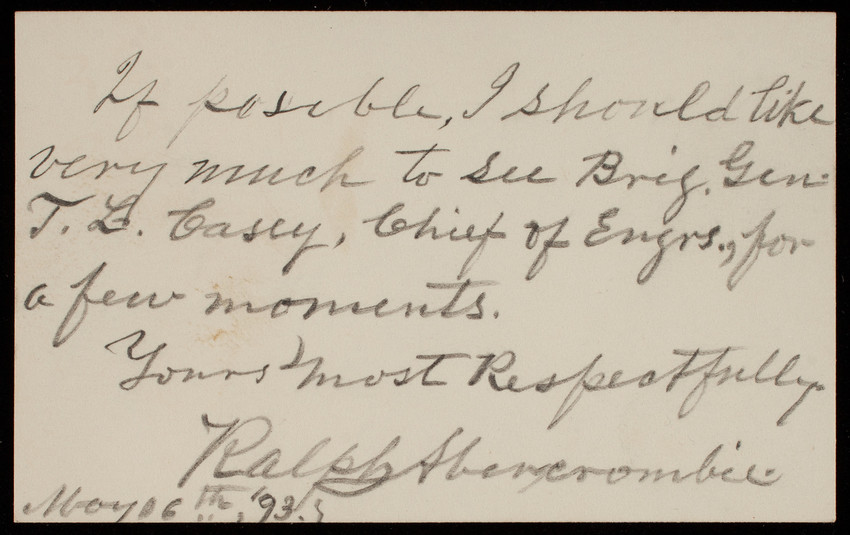 If posible, I should like
very much to see Brig. Gen.
T. L. Casey, Chief of Engrs., for
a few moments.
Yours most Respectfully
Ralph Abercrombie.
May 06th, '93.